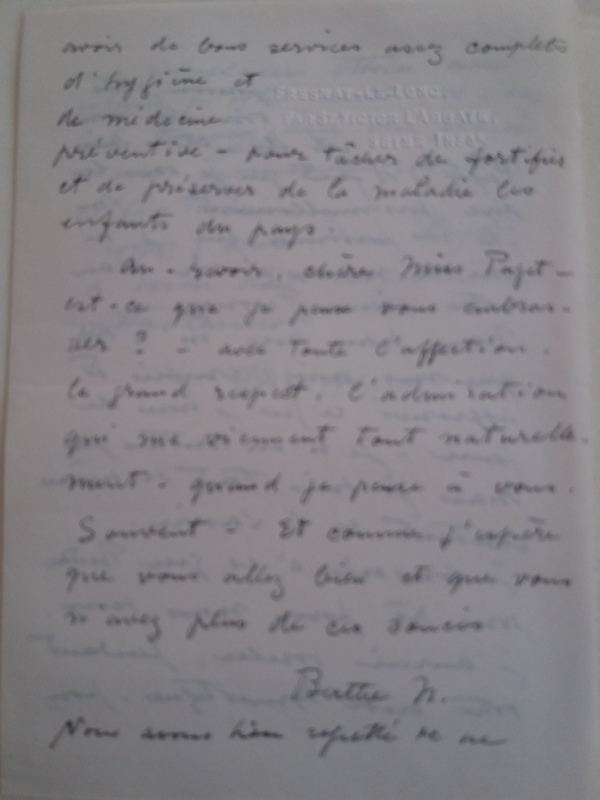 avoir de bons services assez complets
d'hygiène et
FRESNAY-LE-LONG,
de médecine
PAR ST VICTOR L'ABBAYE,
SEINE INFRE
préventive - pour tâcher de fortifier
et de préserver de la maladie les
enfants du pays.
Au-revoir, chère Miss Paget -
est-ce que je peux vous embras-
ser ? - avec toute l'affection,
le grand respect, l'admiration
qui me viennent tout naturelle-
ment - quand je pense à vous.
Souvent - Et comme j'espère
que vous allez bien et que vous
n'avez plus de ces soucis
Berthe N.
Nous avons bien